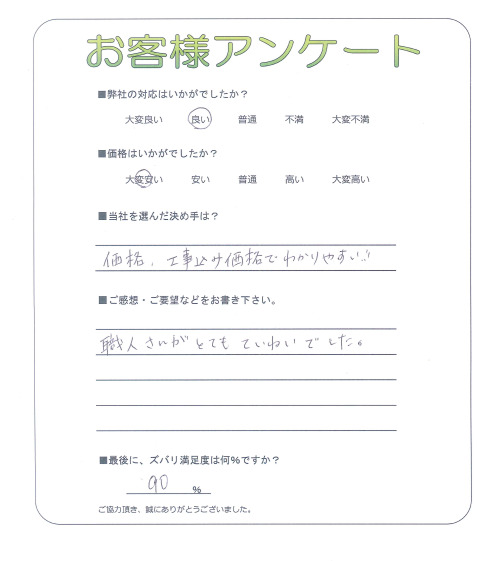 お客様アンケート
■弊社の対応はいかがでしたか？
大変良い 良い 普通 不満 大変不満
■価格はいかがでしたか？
大変安い 安い 普通 高い 大変高い
■当社を選んだ決め手は？
価格、工事込み価格でわかりやすい!!
■ご感想・ご要望などをお書き下さい。
職人さんがとてもていねいでした。
■最後に、ズバリ満足度は何％ですか？
90 ％
ご協力頂き、誠にありがとうございました。